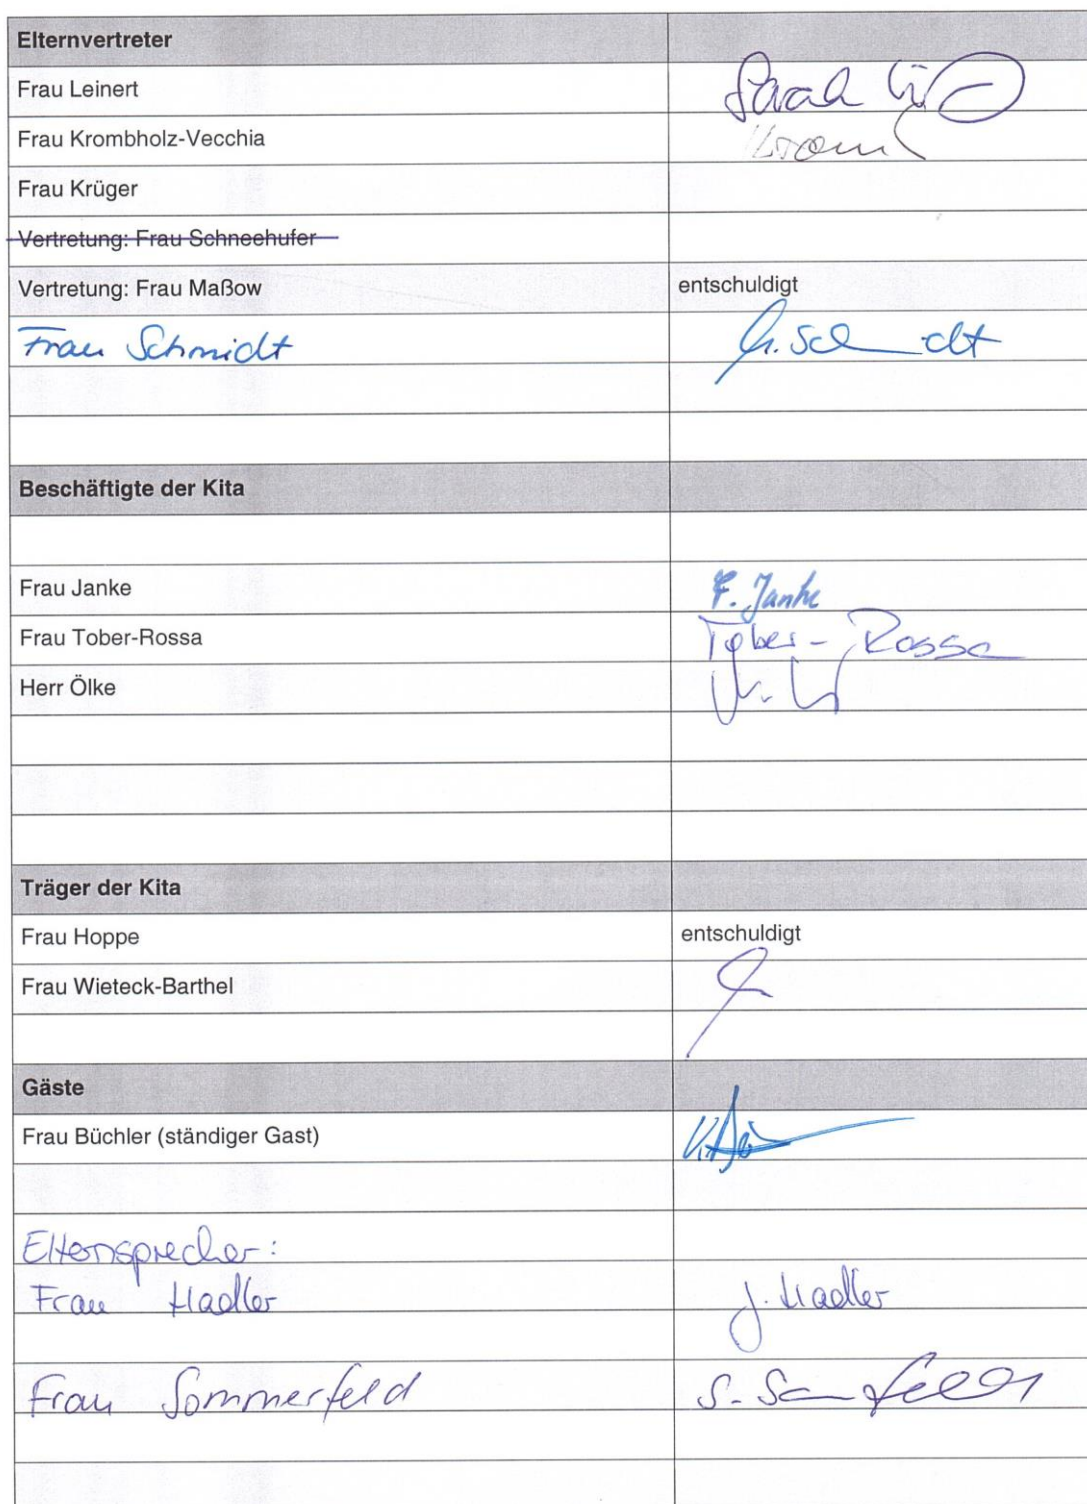 Elternvertreter
Frau Leinert Sarah
Frau Krombholz-Vecchia
Frau Krüger
Vertretung: Frau Schneehufer
Vertretung: Frau Maßow entschuldigt
Frau Schmidt
Beschäftigte der Kita
Frau Janke F. Janke
Frau Tober-Rossa Tober-Rossa
Herr Ölke
Träger der Kita
Frau Hoppe entschuldigt
Frau Wieteck-Barthel
Gäste
Frau Büchler (ständiger Gast)
Elternsprecher:
Frau Hadler J. Hadler
Frau Sommerfeld